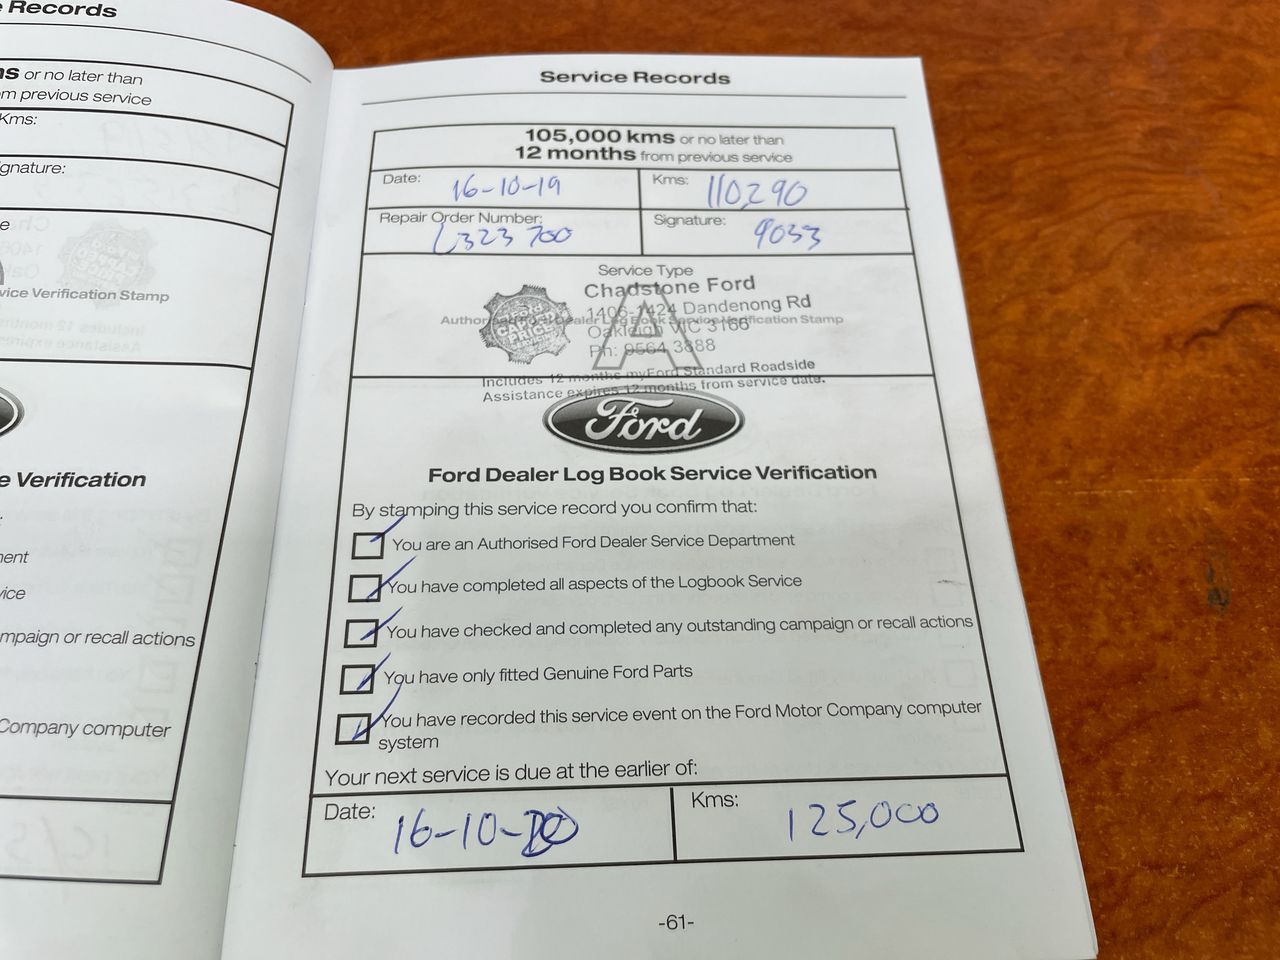 Records
or no later than
m previous service
Kms:
gnature:
e
vice Verification Stamp
e Verification
:
ment
vice
mpaign or recall actions
Company computer
Service Records
105,000 kms or no later than
12 months from previous service
Date: 16-10-19 Kms: 110,290
Repair Order Number: Signature: 9033
323 700
Service Type
Chadstone Ford
1406-1424 Dandenong Rd
Authorised Ford Dealer Log Book Service Verification Stamp
Oakleigh VIC 3166
A
Ph: 9564 3888
Includes 12 months myFord Standard Roadside
Assistance expires 12 months from service date.
Ford
Ford Dealer Log Book Service Verification
By stamping this service record you confirm that:
You are an Authorised Ford Dealer Service Department
You have completed all aspects of the Logbook Service
You have checked and completed any outstanding campaign or recall actions
You have only fitted Genuine Ford Parts
You have recorded this service event on the Ford Motor Company computer
system
Your next service is due at the earlier of:
Date: 16-10-20 Kms: 125,000
-61-